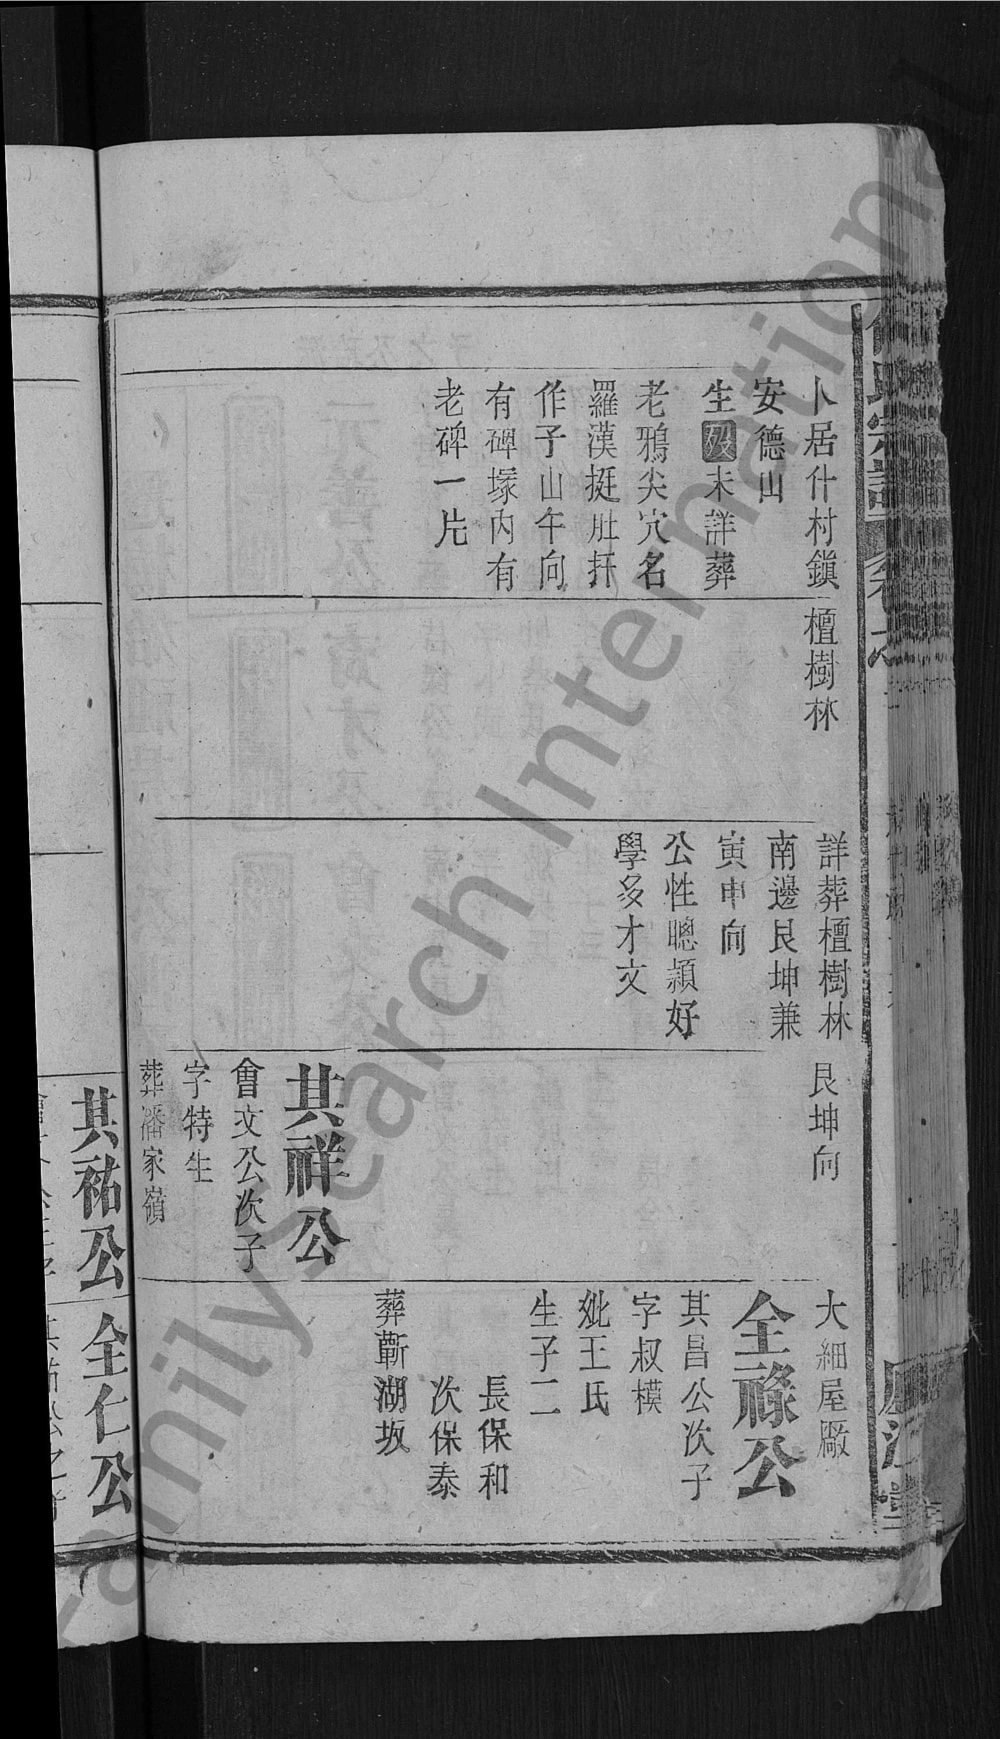 卜居什村鎭
安德山
生歿未詳葬
老鴉尖穴名
羅漢挺肚扦
作子山午向
有碑塚內有
老碑一片
檀樹林
詳葬檀樹林
南邊艮坤兼
寅申向
公性聰頴好
學多才文
艮坤向
其祥公
會文公次子
字特生
葬潘家嶺
大細屋厰
全祿公
其昌公次子
字叔模
妣王氏
生子二
長保和
次保泰
葬蘄湖坂
其祐公
全仁公
FamilySearch International